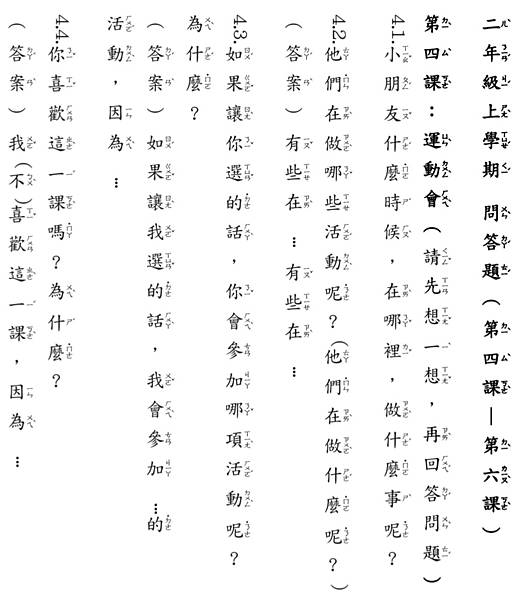 二年級上學期 問答題（第四課—第六課）
第四課：運動會（請先想一想，再回答問題）
4.1. 小朋友什麼時候，在哪裡，做什麼事呢？
4.2. 他們在做哪些活動呢？（他們在做什麼呢？）
（答案）有些在…有些在…
4.3 如果讓你選的話，你會參加哪項活動呢？
為什麼？
（答案）如果讓我選的話，我會參加…的
活動，因為…
4.4. 你喜歡這一課嗎？為什麼？
（答案）我（不）喜歡這一課，因為…